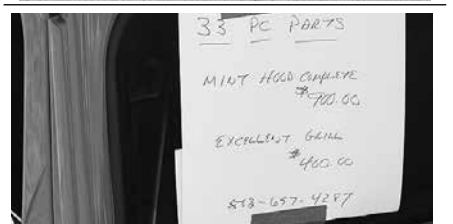 33 PC PARTS
MINT HOOD COMPLETE
$900.00
EXCELLENT GRILL
$400.00
858-657-4287